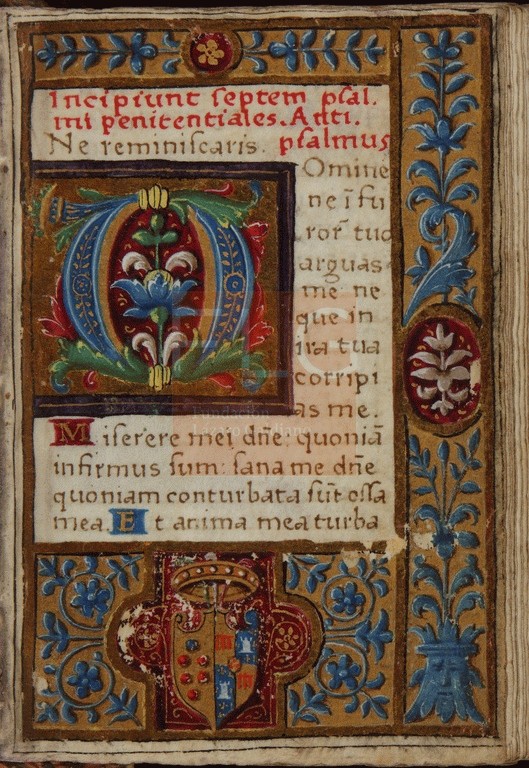 Incipiunt septem psal.
mi penitentiales. Anti.
Ne reminiscaris. psalmus
Omine
ne ĩ fu
rorͬ tuo
arguas
me ne
que in
ira tua
corripi
as me.
Miserere mei dñe: quoniã
infirmus sum: sana me dñe
quoniam conturbata sũt ossa
mea. Et anima mea turba
Fundación
Lázaro Galdiano